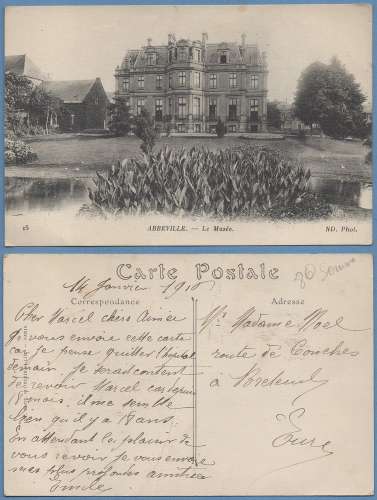 25
ABBEVILLE. — Le Musée.
ND. Phot.
Carte Postale
86 Somme
14 Janvier 1916
Correspondance
Adresse
Cher Marcel chère Aimée
je vous envoie cette carte
car je pense quitter l'hopital
demain. Je serai content
de revoir Marcel car depuis
18 mois, il me semble
bien qu'il y a 8 ans.
En attendant le plaisir de
vous revoir je vous envoie
mes plus profondes amitiés
Emile
Mr Madame Noel
route de Conches
à Breteuil
Eure